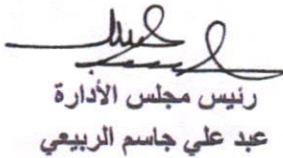 رئيس مجلس الأدارة
عبد علي جاسم الربيعي